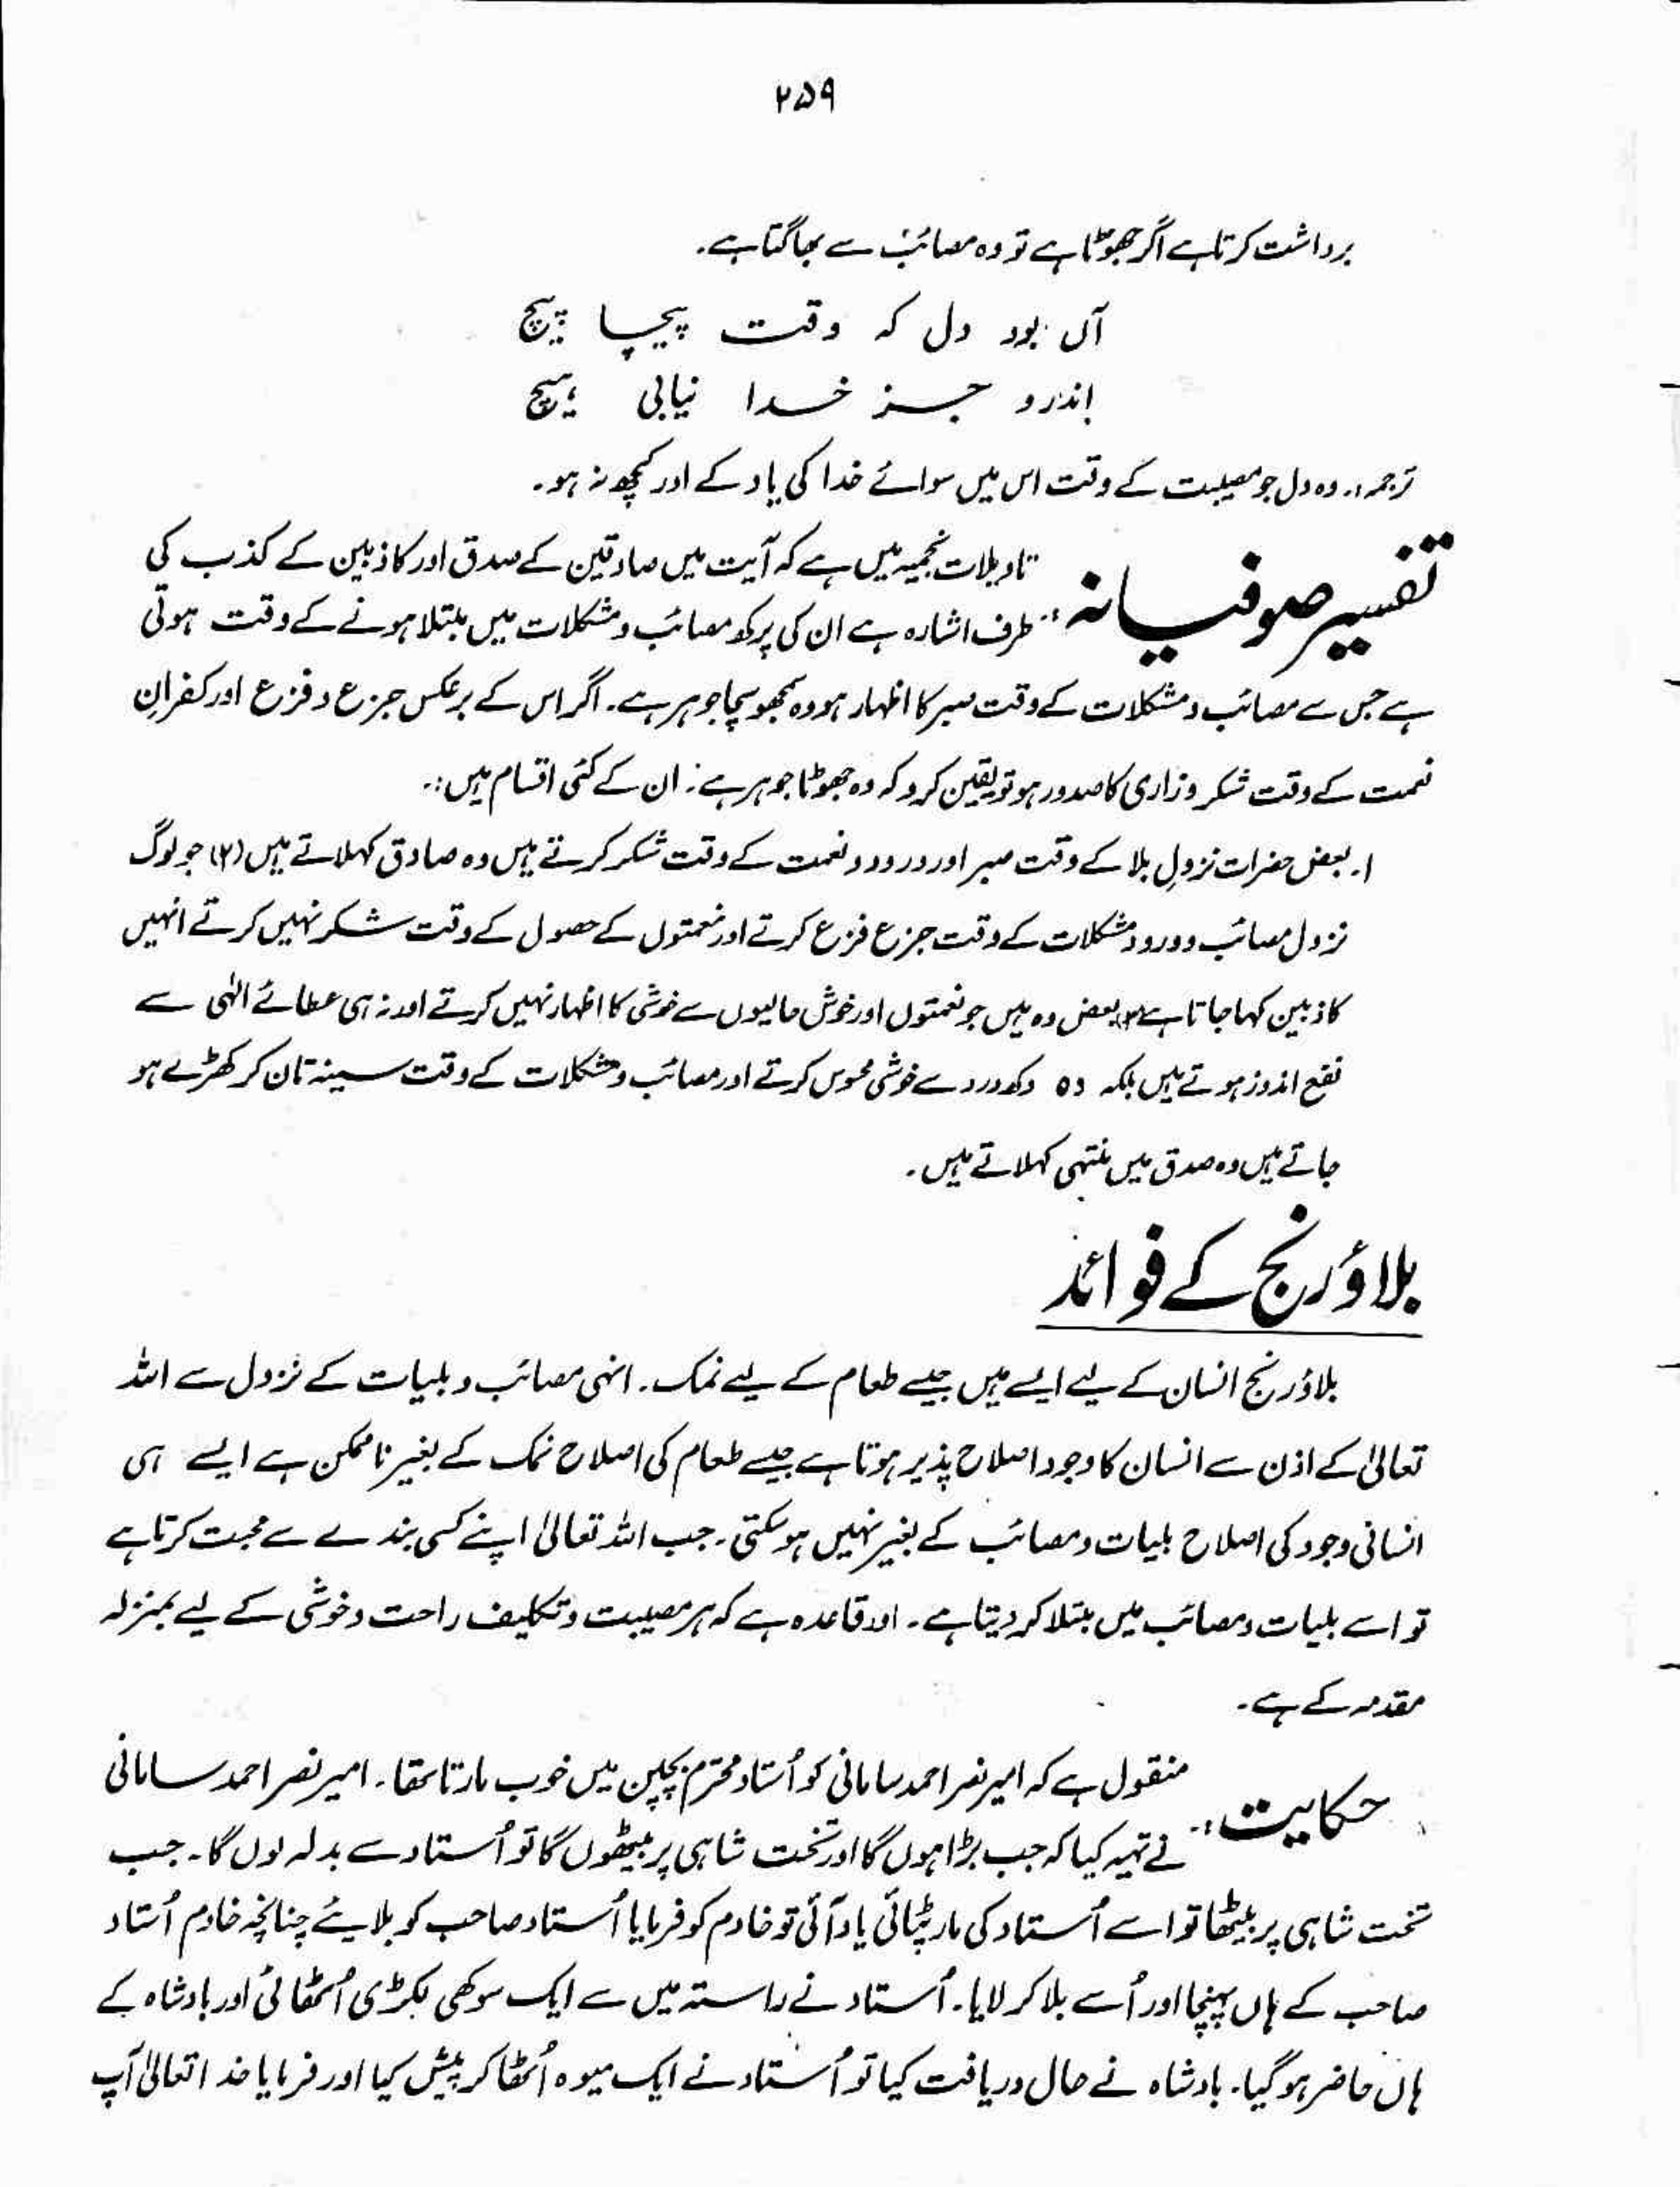 ۲۵۹
برداشت کرتا ہے اگر جھوٹا ہے تو وہ مصائب سے بھاگتا ہے۔
آں بود دل کہ وقت پیچا پیچ
اندرو جز خدا نیابی ہیچ
ترجمہ:۔ وہ دل جو مصیبت کے وقت اس میں سوائے خدا کی یاد کے اور کچھ نہ ہو۔
تفسیر صوفیانہ:۔ تاویلات نجمیہ میں ہے کہ آیت میں صادقین کے صدق اور کاذبین کے کذب کی
طرف اشارہ ہے ان کی پرکھ مصائب و مشکلات میں مبتلا ہونے کے وقت ہوتی
ہے جس سے مصائب و مشکلات کے وقت صبر کا اظہار ہو وہ سمجھو سچا جوہر ہے۔ اگر اس کے برعکس جزع و فزع اور کفرانِ
نعمت کے وقت شکر و زاری کا صدور ہو تو یقین کرو کہ وہ جھوٹا جوہر ہے۔ ان کے کئی اقسام ہیں:۔
۱۔ بعض حضرات نزولِ بلا کے وقت صبر اور درود و نعمت کے وقت شکر کرتے ہیں وہ صادق کہلاتے ہیں (۲) جو لوگ
نزول مصائب و ورود مشکلات کے وقت جزع فزع کرتے اور نعمتوں کے حصول کے وقت شکر نہیں کرتے انہیں
کاذبین کہا جاتا ہے (۳) بعض وہ ہیں جو نعمتوں اور خوش حالیوں سے خوشی کا اظہار نہیں کرتے اور نہ ہی عطائے الٰہی سے
نفع اندوز ہوتے ہیں بلکہ وہ دکھ درد سے خوشی محسوس کرتے اور مصائب و مشکلات کے وقت سینہ تان کر کھڑے ہو
جاتے ہیں وہ صدق میں منتہی کہلاتے ہیں۔
بلاؤ رنج کے فوائد
بلاؤ رنج انسان کے لیے ایسے ہیں جیسے طعام کے لیے نمک۔ انہی مصائب و بلیات کے نزول سے اللہ
تعالیٰ کے اذن سے انسان کا وجود اصلاح پذیر ہوتا ہے جیسے طعام کی اصلاح نمک کے بغیر ناممکن ہے ایسے ہی
انسانی وجود کی اصلاح بلیات و مصائب کے بغیر نہیں ہو سکتی۔ جب اللہ تعالیٰ اپنے کسی بندے سے محبت کرتا ہے
تو اسے بلیات و مصائب میں مبتلا کر دیتا ہے۔ اور قاعدہ ہے کہ ہر مصیبت و تکلیف راحت و خوشی کے لیے بمنزلہ
مقدمہ کے ہے۔
حکایت:۔ منقول ہے کہ امیر نصر احمد سامانی کو اُستاد محترم بچپن میں خوب مارتا تھا۔ امیر نصر احمد سامانی
نے تہیہ کیا کہ جب بڑا ہوں گا اور تخت شاہی پر بیٹھوں گا تو اُستاد سے بدلہ لوں گا۔ جب
تخت شاہی پر بیٹھا تو اسے اُستاد کی مار پٹائی یاد آئی تو خادم کو فرمایا اُستاد صاحب کو بلایئے چنانچہ خادم اُستاد
صاحب کے ہاں پہنچا اور اُسے بلا کر لایا۔ اُستاد نے راستہ میں سے ایک سوکھی لکڑی اُٹھائی اور بادشاہ کے
ہاں حاضر ہو گیا۔ بادشاہ نے حال دریافت کیا تو اُستاد نے ایک میوہ اُٹھا کر پیش کیا اور فرمایا خدا تعالیٰ آپ